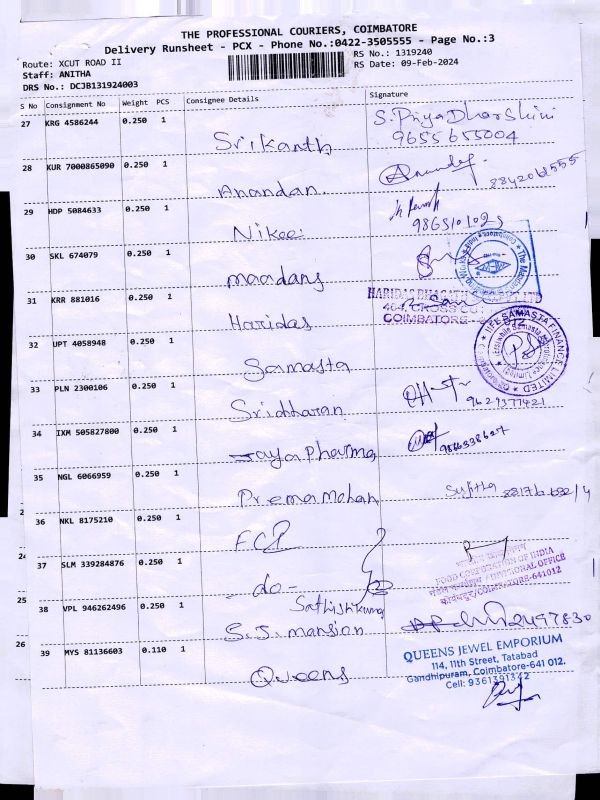 THE PROFESSIONAL COURIERS, COIMBATORE
Delivery Runsheet - PCX - Phone No.:0422-3505555 - Page No.:3
Route: XCUT ROAD II
RS No.: 1319240
Staff: ANITHA
RS Date: 09-Feb-2024
DRS No.: DCJB131924003
S No Consignment No Weight PCS Consignee Details Signature
27 KRG 4586244 0.250 1 Srikanth S.PriyaDharShini
9655655004
28 KUR 7000865090 0.250 1 Anandan.
29 HDP 5084633 0.250 1
30 SKL 674079 0.250 1
31 KRR 881016 0.250 1 Haridas
COIMBATORE
32 UPT 4058948 0.250 1 Samasta
IIFL SAMASTA FINANCE LIMITED
33 PLN 2300106 0.250 1 Sridharan 9629377421
34 IXM 505827800 0.250 1 Jaya pharma
35 NGL 6066959 0.250 1 Prema Mohan Sujitha
36 NKL 8175210 0.250 1 FCI
FOOD CORPORATION OF INDIA
DIVISIONAL OFFICE
COIMBATORE-641012
37 SLM 339284876 0.250 1 -do-
Sathishkumar
38 VPL 946262496 0.250 1 S.S. mansion
39 MYS 81136603 0.110 1 Queens
QUEENS JEWEL EMPORIUM
114, 11th Street, Tatabad
Gandhipuram, Coimbatore-641 012.
Cell: 9361391342
24
25
26